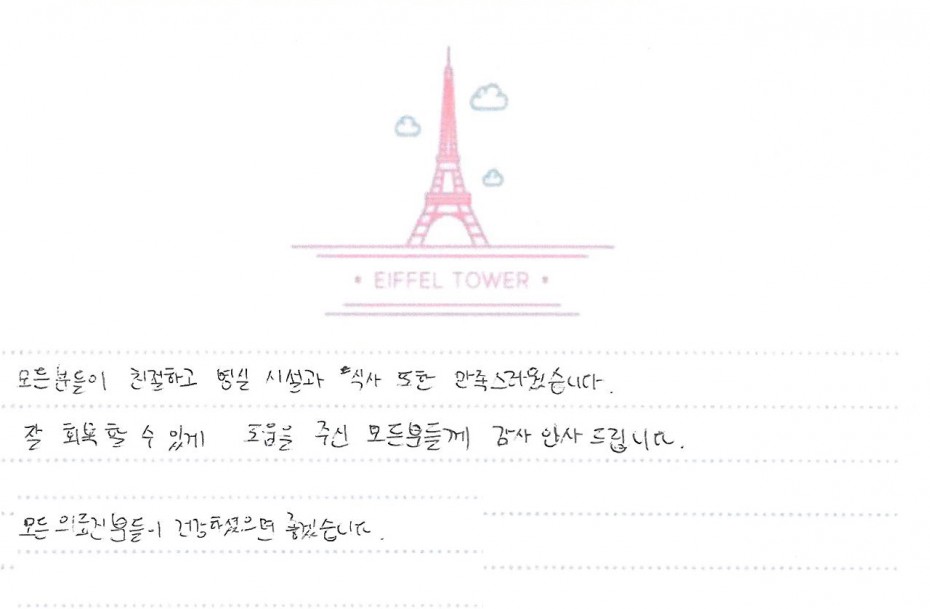 • EIFFEL TOWER •
모든분들이 친절하고 병실 시설과 식사 또한 만족스러웠습니다.
잘 회복할 수 있게 도움을 주신 모든분들께 감사 인사 드립니다.
모든 의료진분들이 건강하셨으면 좋겠습니다.